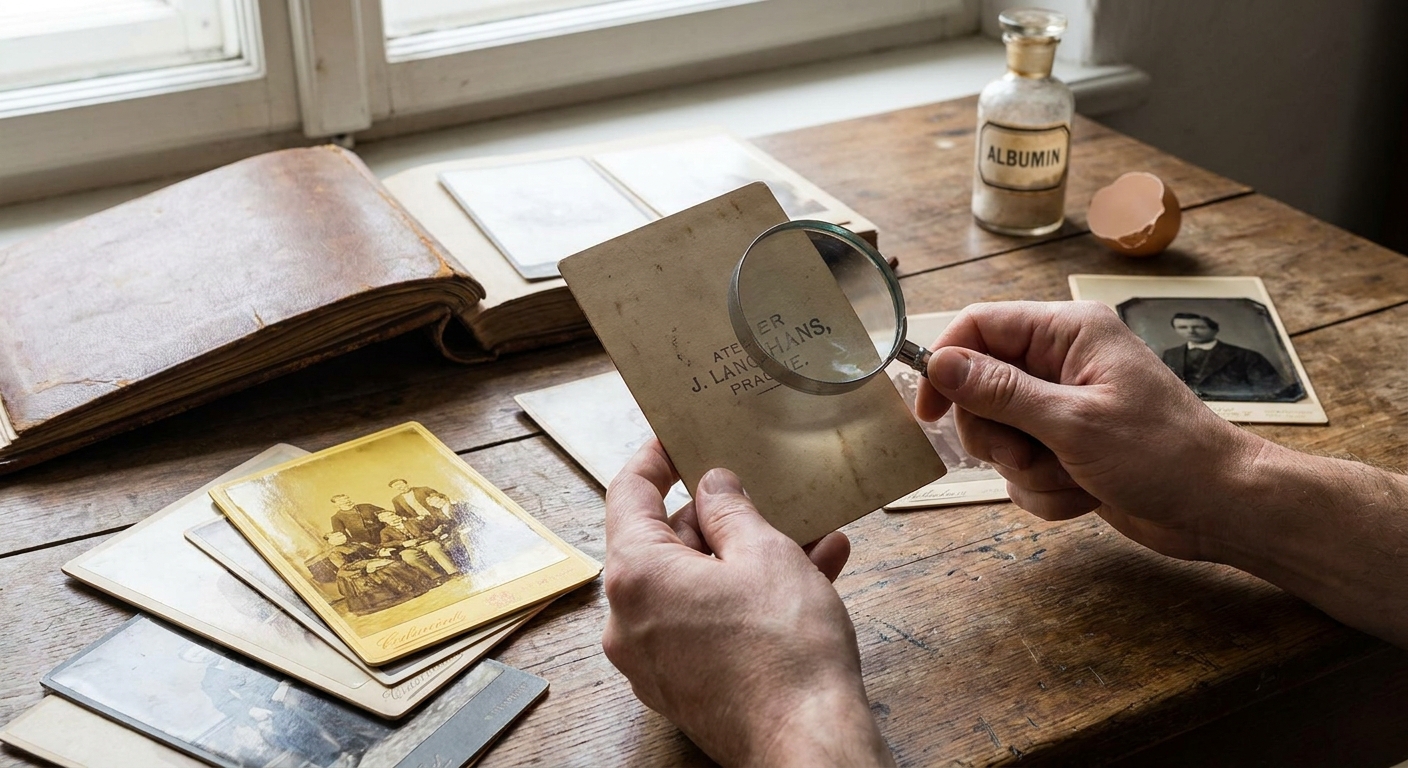 ALBUMIN
ATELIER
J. LANGHANS,
PRAGUE.